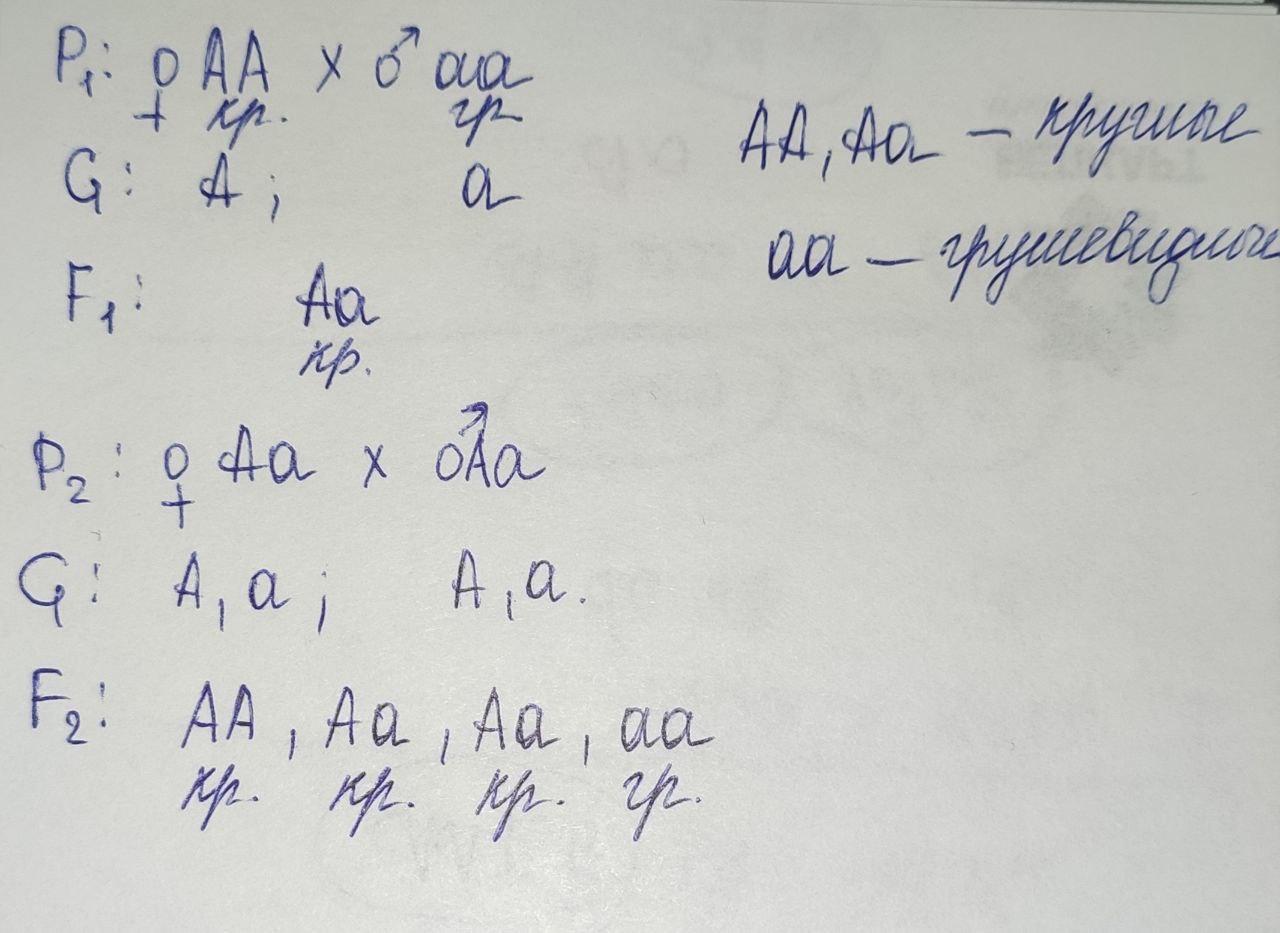 P₁: ♀ AA x ♂ aa
кр. гр.
G: A; a
F₁: Aa
кр.
AA, Aa – круглые
aa – грушевидные
P₂: ♀ Aa x ♂ Aa
G: A, a; A, a.
F₂: AA, Aa, Aa, aa
кр. кр. кр. гр.